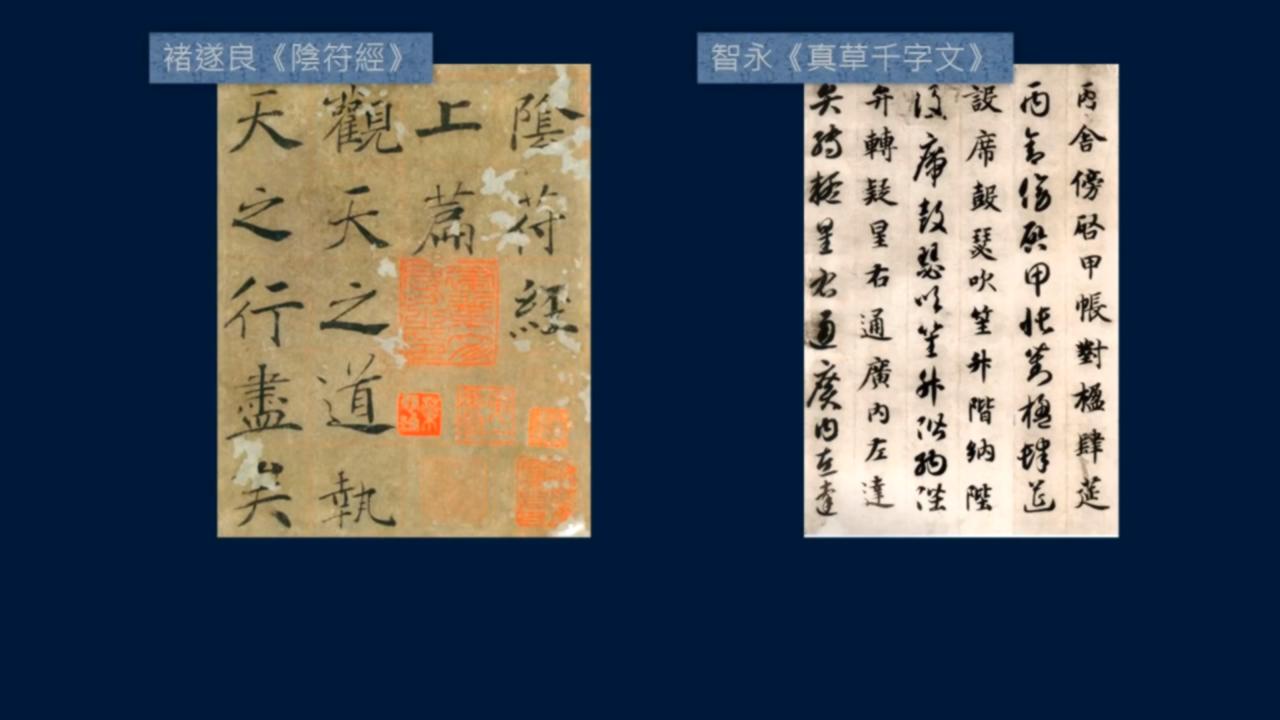 褚遂良《陰符經》
陰符經
上篇
觀天之道執
天之行盡矣
智永《真草千字文》
丙舍傍啓甲帳對楹肆筵
丙舍傍啓甲帳對楹肆筵
設席鼓瑟吹笙升階納陛
設席鼓瑟吹笙升階納陛
弁轉疑星右通廣內左達
弁轉疑星右通廣內左達